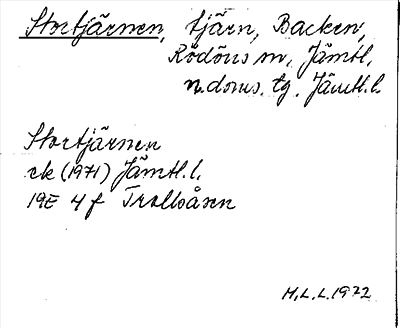 Stortjärnen, tjärn, Backen,
Rödöns sn, Jämtl,
n.doms. tg. Jämtl. l.
Stortjärnen
ek (1971) Jämtl. l.
19E 4 f Trollsåsen
H.L.L. 1972